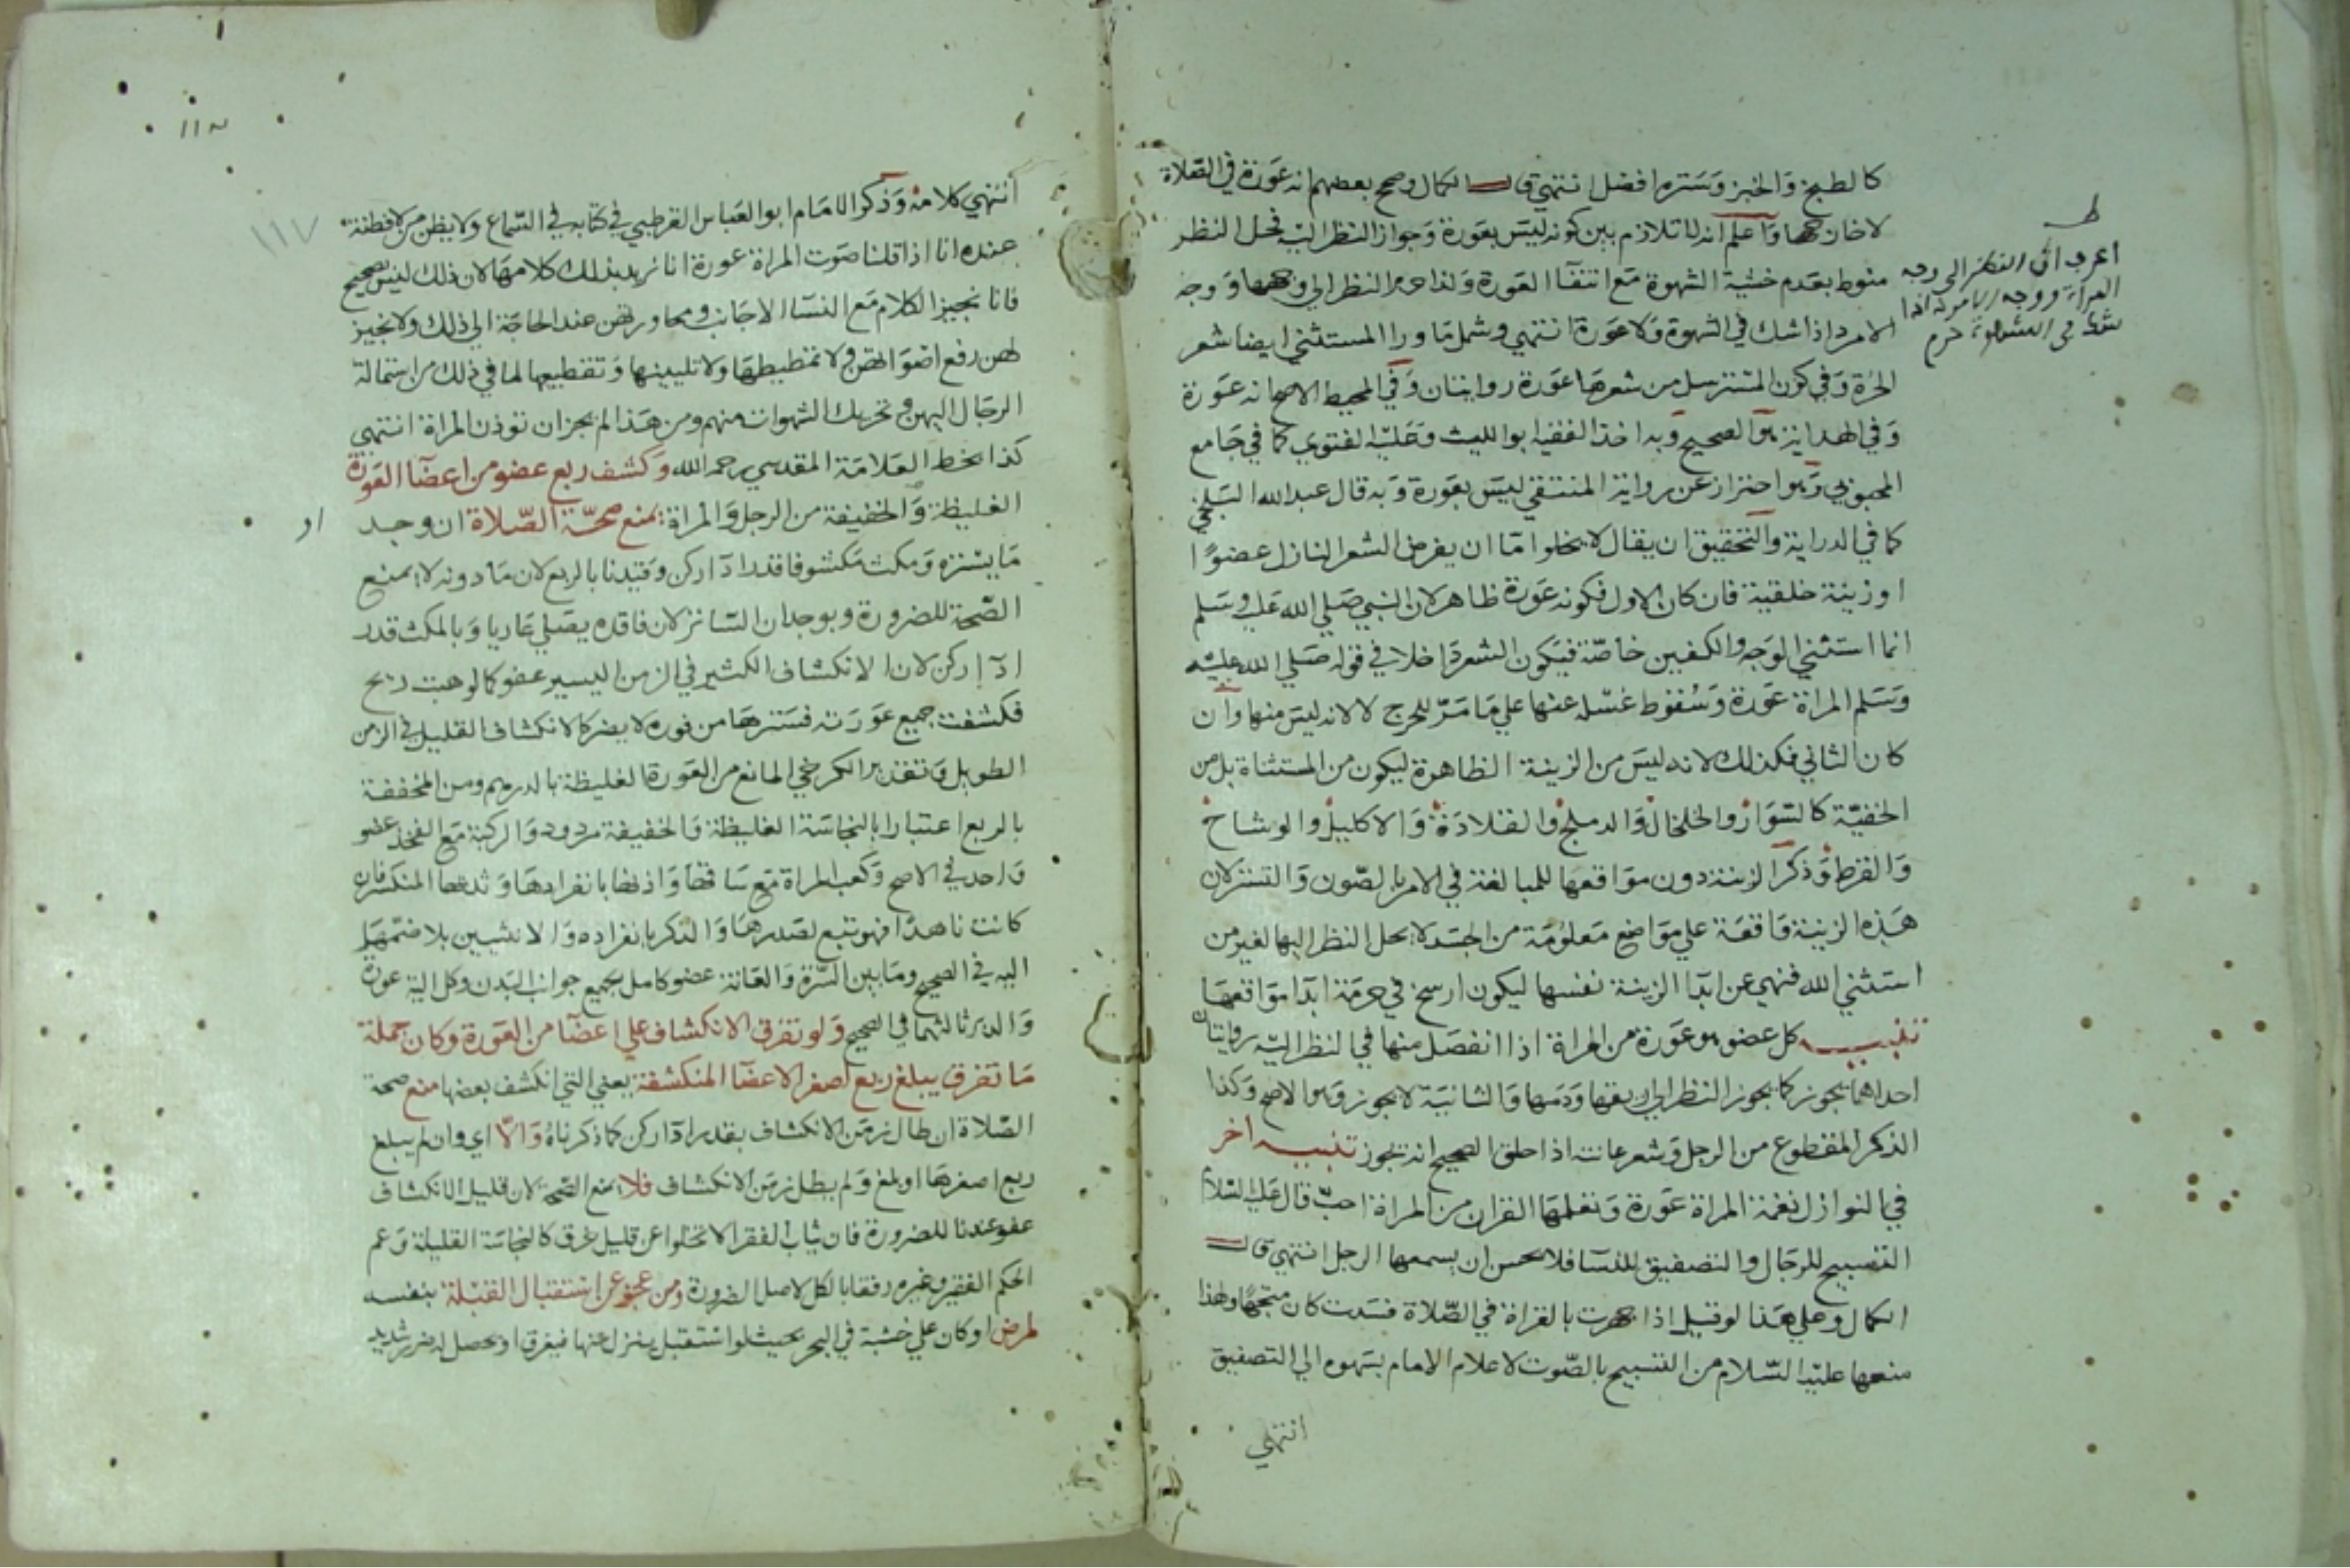 كالطبخ والخبز وستره افضل انتهي قال الكمال وصحح بعضهم انه عورة في الصلاة
لا خارجها واعلم انه لا تلازم بين كونه ليس بعورة وجواز النظر اليه فحل النظر
منوط بعدم خشية الشهوة مع انتفاء العورة ولذا حرم النظر الي وجهها ووجه
الامرد اذا شك في الشهوة ولا عورة انتهي وشمل ما ورا المستثني ايضا شعر
الحرة وفي كون المسترسل من شعرها عورة روايتان وفي المحيط الاصح انه عورة
وفي الهداية هو الصحيح وبه اخذ الفقيه ابو الليث وعليه الفتوي كما في جامع
المحبوبي وهو احتراز عن رواية المنتقي ليس بعورة وبه قال عبد الله البلخي
كما في الدراية والتحقيق ان يقال لا يخلوا اما ان يفرض الشعر النازل عضوًا
او زينة خلقية فان كان الاول فكونه عورة ظاهر لان النبي صلي الله عليه وسلم
انما استثني الوجه والكفين خاصة فيكون الشعر داخلا في قوله صلي الله عليه
وسلم المراة عورة وسقوط غسله عنها علي ما مر للحرج لا لانه ليس منها وان
كان الثاني فكذلك لانه ليس من الزينة الظاهرة ليكون من المستثناة بل من
الخفية كالسوار والخلخال والدملج والقلادة والاكليل والوشاح
والقرط وذكر الزينة دون مواقعها للمبالغة في الامر بالصون والتستر لان
هذه الزينة واقعة علي مواضع معلومة من الجسد لا يحل النظر اليها لغير من
استثني الله فنهي عن ابدا الزينة نفسها ليكون ارسخ في حرمة ابدا مواقعها
تنبيه كل عضو هو عورة من المراة اذا انفصل منها في النظر اليه روايتان
احداهما يجوز كما يجوز النظر الي ريقها ودمها والثانية لا يجوز وهو الاصح وكذا
الذكر المقطوع من الرجل وشعر عانته اذا حلق الصحيح انه تجوز تنبيه اخر
في النوازل نغمة المراة عورة وتعلمها القران من المراة احب قال عليه السلام
التسبيح للرجال والتصفيق للنسا فلا يحسن ان يسمعها الرجل انتهي قال
الكمال وعلي هذا لو قيل اذا جهرت بالقراة في الصلاة فسدت كان متجها ولهذا
منعها عليه السلام من التسبيح بالصوت لاعلام الامام بسهوه الي التصفيق
انتهي
ط
اعرف ان النظر الى وجه
المراة ووجه الامرد اذا
شك في الشهوة حرم
١١٧
انتهي كلامه وذكر الامام ابو العباس القرطبي في كتابه في السماع ولا يظن من لا فطنة
عنده انا اذا قلنا صوت المراة عورة انا نريد بذلك كلامها لان ذلك ليس بصحيح
فانا نجيز الكلام مع النسا الاجانب ومحاورتهن عند الحاجة الي ذلك ولا نجيز
لهن رفع اصواتهن ولا تمطيطها ولا تليينها وتقطيعها لما في ذلك من استمالة
الرجال اليهن وتحريك الشهوات منهم ومن هذا لم يجز ان توذن المراة انتهي
كذا بخط العلامة المقدسي رحمه الله وكشف ربع عضو من اعضا العورة
الغليظة والخفيفة من الرجل والمراة يمنع صحة الصلاة ان وجد
ما يستره ومكث مكشوفا قدر ادا ركن وقيدنا بالربع لان ما دونه لا يمنع
الصحة للضرورة وبوجدان الساتر لان فاقده يصلي عاريا وبالمكث قدر
ادا ركن لان الانكشاف الكثير في الزمن اليسير عفو كما لو هبت ريح
فكشفت جميع عورته فسترها من فوره لا يضر كالانكشاف القليل في الزمن
الطويل وتقدير الكرخي المانع من العورة الغليظة بالدرهم ومن المخففة
بالربع اعتبارا بالنجاسة الغليظة والخفيفة مردود والركبة مع الفخذ عضو
واحد في الاصح وكعب المراة مع ساقها واذنها بانفرادها وثديها المنكسر فان
كانت ناهدا فهو تبع لصدرها والذكر بانفراده والانثيين بلا ضمهما
اليه في الصحيح وما بين السرة والعانة عضو كامل بجميع جوانب البدن وكل الية عورة
والدبر ثالثهما في الصحيح ولو تفرق الانكشاف علي اعضا من العورة وكان جملة
ما تفرق يبلغ ربع اصغر الاعضا المنكشفة يعني التي انكشف بعضها منع صحة
الصلاة ان طال زمن الانكشاف بقدر ادا ركن كما ذكرناه والا اي وان لم يبلغ
ربع اصغرها او بلغ ولم يطل زمن الانكشاف فلا يمنع الصحة لان قليل الانكشاف
عفو عندنا للضرورة فان ثياب الفقرا لا تخلوا عن قليل خرق كالنجاسة القليلة وعم
الحكم الفقير وغيره رفقا بالكل لاصل الضرورة ومن عجز عن استقبال القبلة بنفسه
لمرض او كان علي خشبة في البحر بحيث لو استقبل ينزل عنها فيغرق او يحصل له ضرر شديد
او
١١٧